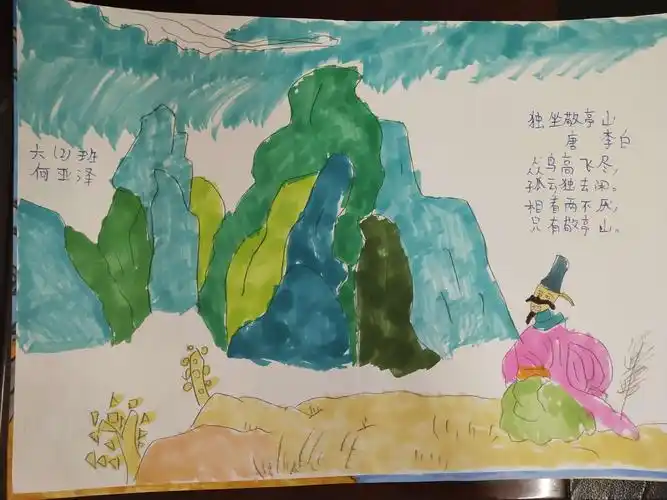 六(2)班
何亚泽
独坐敬亭山
唐 李白
众鸟高飞尽,
孤云独去闲。
相看两不厌,
只有敬亭山。